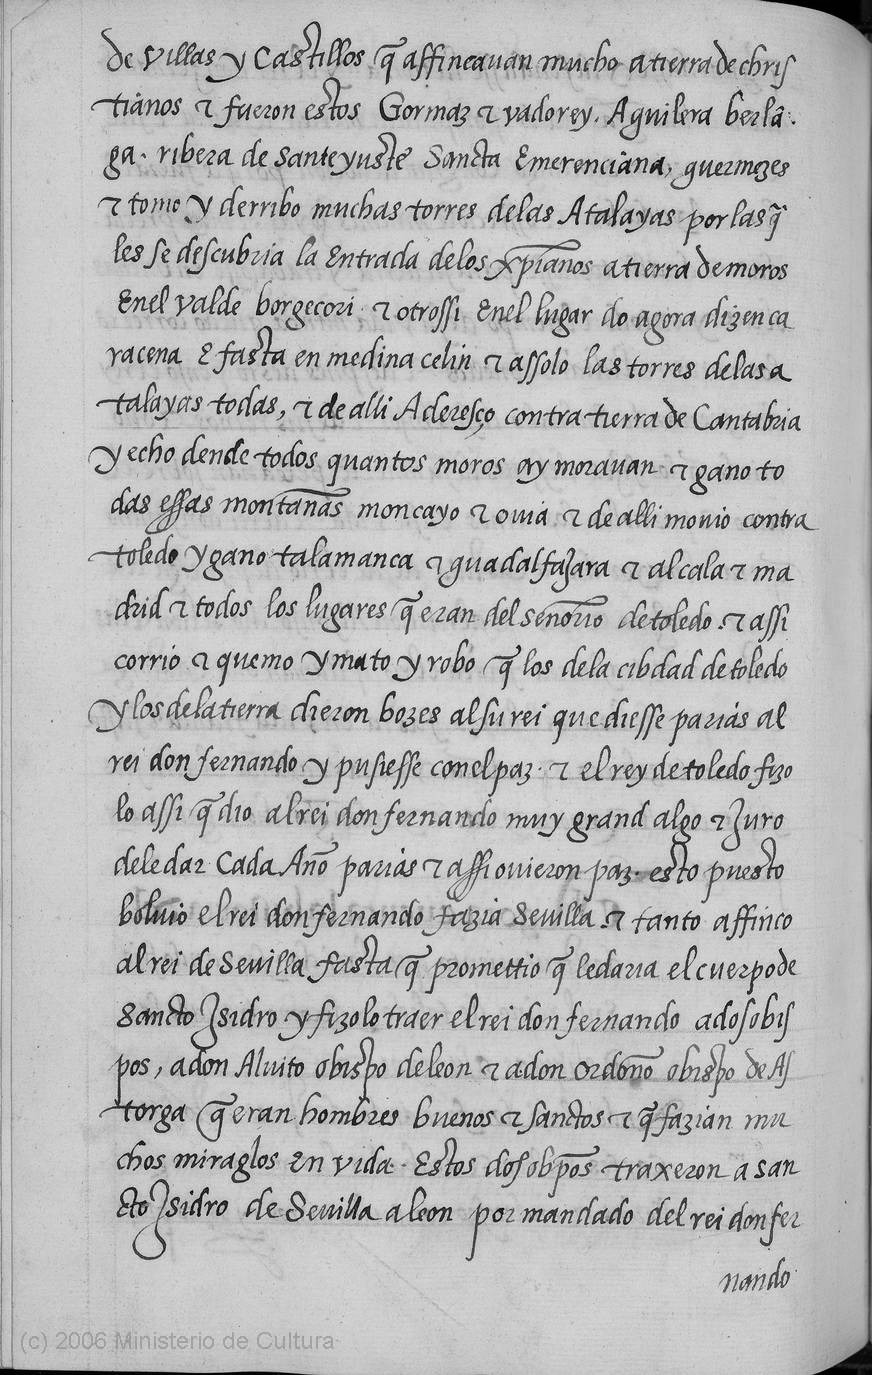 de villas y Castillos q̃ affincauan mucho a tierra de chris
tianos τ fueron estos Gormaz τ vadorey. Aguilera berlã.
ga. ribera de santeyuste Sancta Emerenciana, guermezes
τ tomo y derribo muchas torres delas Atalayas por las q̃
les se descubria la Entrada delos xp̃ianos a tierra de moros
Enel valde borgecori τ otrossi Enel lugar do agora dizen ca
racena E fasta en medina celin τ assolo las torres delas a
talayas todas, τ de alli Aderesço contra tierra de Cantabria
y echo dende todos quantos moros ay morauan τ gano to
das essas montañas moncayo τ ouia τ de alli mouio contra
toledo y gano talamanca τ guadalfajara τ alcala τ ma
drid τ todos los lugares q̃ eran del señorio de toledo. τ assi
corrio τ quemo y mato y robo q̃ los dela cibdad de toledo
y los de la tierra dieron bozes al su rei que diesse parias al
rei don fernando y pusiesse con el paz. τ el rey de toledo fizo
lo assi q̃ dio al rei don fernando muy grand algo τ Juro
dele dar Cada Año parias τ assi ouieron paz. esto puesto
boluio el rei don fernando fazia Sevilla. τ tanto affinco
al rei de Sevilla fasta q̃ promettio q̃ le daria el cuerpo de
Sancto Jsidro y fizolo traer el rei don fernando a dos obis
pos, a don Aluito obispo de leon τ a don ordoño obispo de As
torga q̃ eran hombres buenos τ sanctos τ q̃ fazian mu
chos miraglos en vida. Estos dos obp̃os traxeron a san
cto Jsidro de Sevilla a leon por mandado del rei don fer
nando
(c) 2006 Ministerio de Cultura